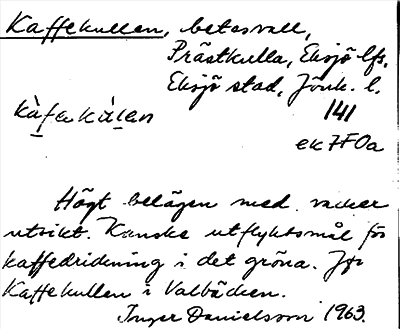 Kaffekullen, betesvall,
Prästkulla, Eksjö lfs,
Eksjö stad, Jönk. l.
kàfakúlan 141
ek 7F0a
Högt belägen med vacker
utsikt. Kanske utflyktsmål för
kaffedrickning i det gröna. Jfr
Kaffekullen i Valbäcken.
Inger Danielsson 1963.